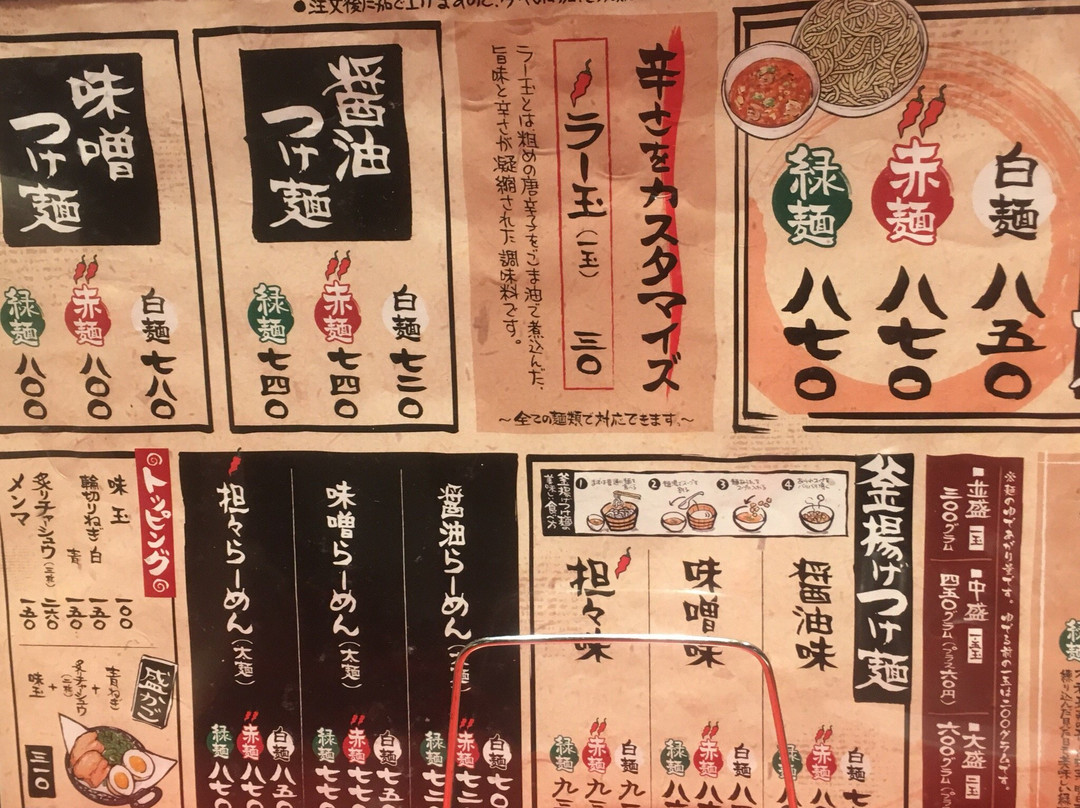 ●注文後に
白麺 八五〇
赤麺 八七〇
緑麺 八七〇
辛さをカスタマイズ
ラー玉(一玉) 三〇
ラー玉とは粗めの唐辛子をごま油で煮込んだ、
旨味と辛さが凝縮された調味料です。
〜全ての麺類で対応できます。〜
醤油
つけ麺
白麺 七二〇
赤麺 七四〇
緑麺 七四〇
味噌
つけ麺
白麺 七八〇
赤麺 八〇〇
緑麺 八〇〇
並盛
三〇〇グラム
中盛
四五〇グラム(プラス六〇円)
大盛
六〇〇グラム
釜揚げつけ麺
1
2
3
4
醤油味
白麺
赤麺
緑麺
味噌味
白麺
赤麺
緑麺
担々味
白麺
赤麺
緑麺
醤油らーめん
白麺 七〇
赤麺
緑麺
味噌らーめん(太麺)
白麺 七五
赤麺 七七
緑麺 七七
担々らーめん(太麺)
白麺 八五
赤麺 八七〇
緑麺 八七〇
トッピング
味玉 一〇〇
輪切りねぎ 白 一五〇
青 一五〇
炙りチャーシュウ(三枚) 二六〇
メンマ 一五〇
盛かご
青ねぎ
+
炙りチャーシュウ
(三枚)
+
味玉
三一〇